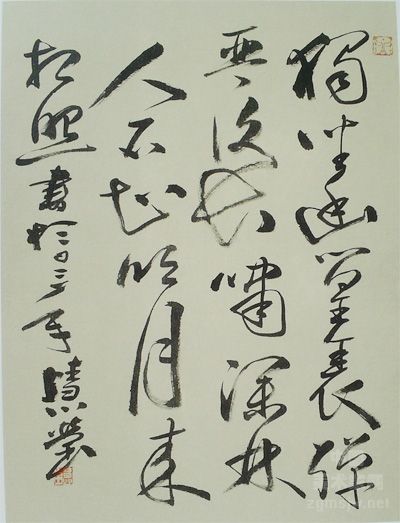 獨坐幽篁裏彈
琴復長嘯深林
人不知明月來
相照 書於